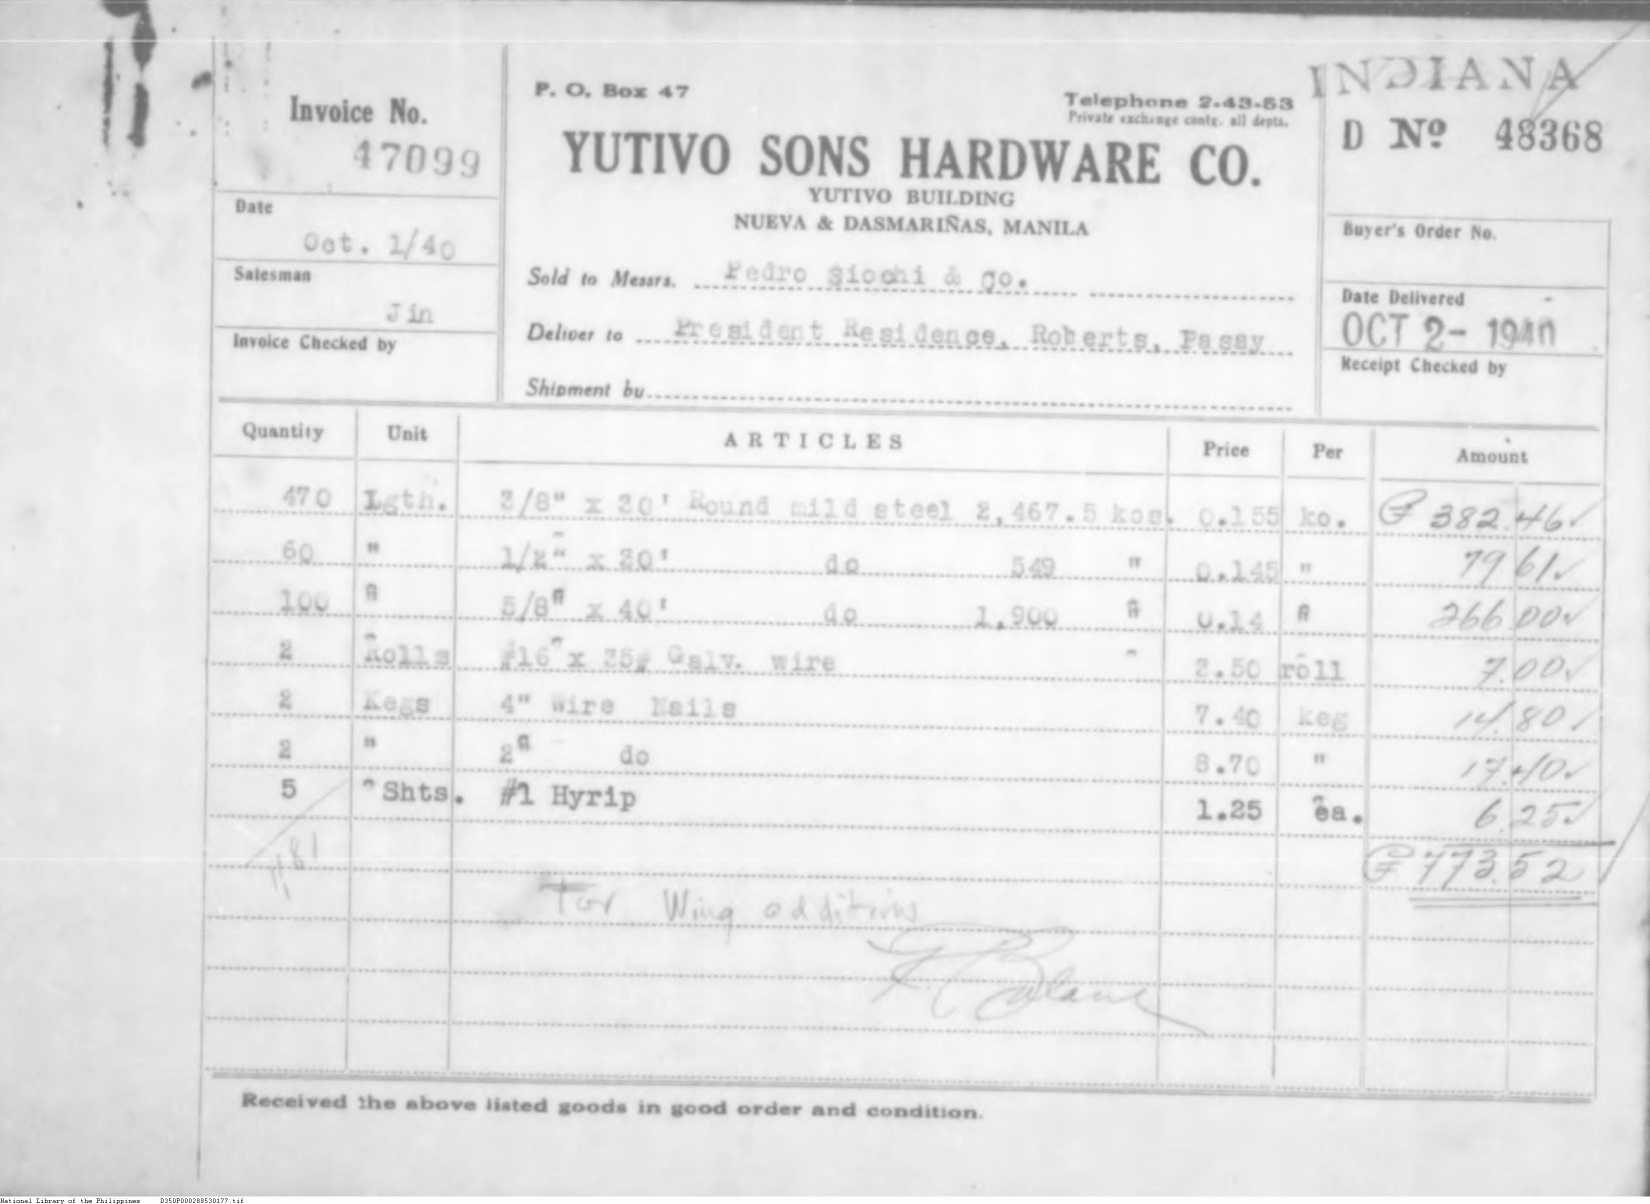 INDIANA
Invoice No.
47099
P. O. Box 47
Telephone 2-43-53
Private exchange contg. all depts.
D Nº 48368
YUTIVO SONS HARDWARE CO.
YUTIVO BUILDING
NUEVA & DASMARIÑAS, MANILA
Date
Oct. 1/40
Buyer's Order No.
Salesman
Jin
Sold to Messrs. Pedro Siochi & Co.
Date Delivered
OCT 2- 1940
Invoice Checked by
Deliver to President Residence, Roberts, Pasay
Receipt Checked by
Shipment by
Quantity Unit ARTICLES Price Per Amount
470 Lgth. 3/8" x 30' Round mild steel 2,467.5 kos. 0.155 ko. ₱ 382.46
60 " 1/2" x 30' do 549 " 0.145 " 79 61
100 " 5/8" x 40' do 1,900 " 0.14 " 266 00
2 Rolls #16 x 35# Galv. wire 3.50 roll 7.00
2 Kegs 4" Wire Nails 7.40 keg 14.80
2 " 2" do 8.70 " 17.40
5 Shts. #1 Hyrip 1.25 ea. 6.25
₱ 773.52
For Wing additions
Received the above listed goods in good order and condition.
National Library of the Philippines D350P000288530177.tif